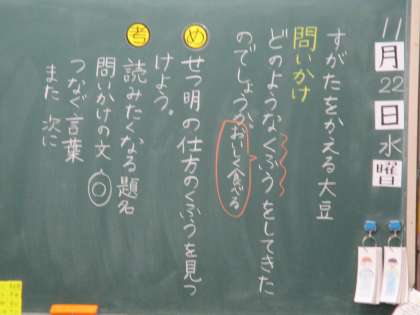 11
月
22
日
水
曜
すがたをかえる大豆
問いかけ
どのようなくふうをしてきた
のでしょうか。
おいしく食べる
め
せつ明の仕方のくふうを見つ
けよう。
考
読みたくなる題名
問いかけの文
つなぐ言葉
また 次に